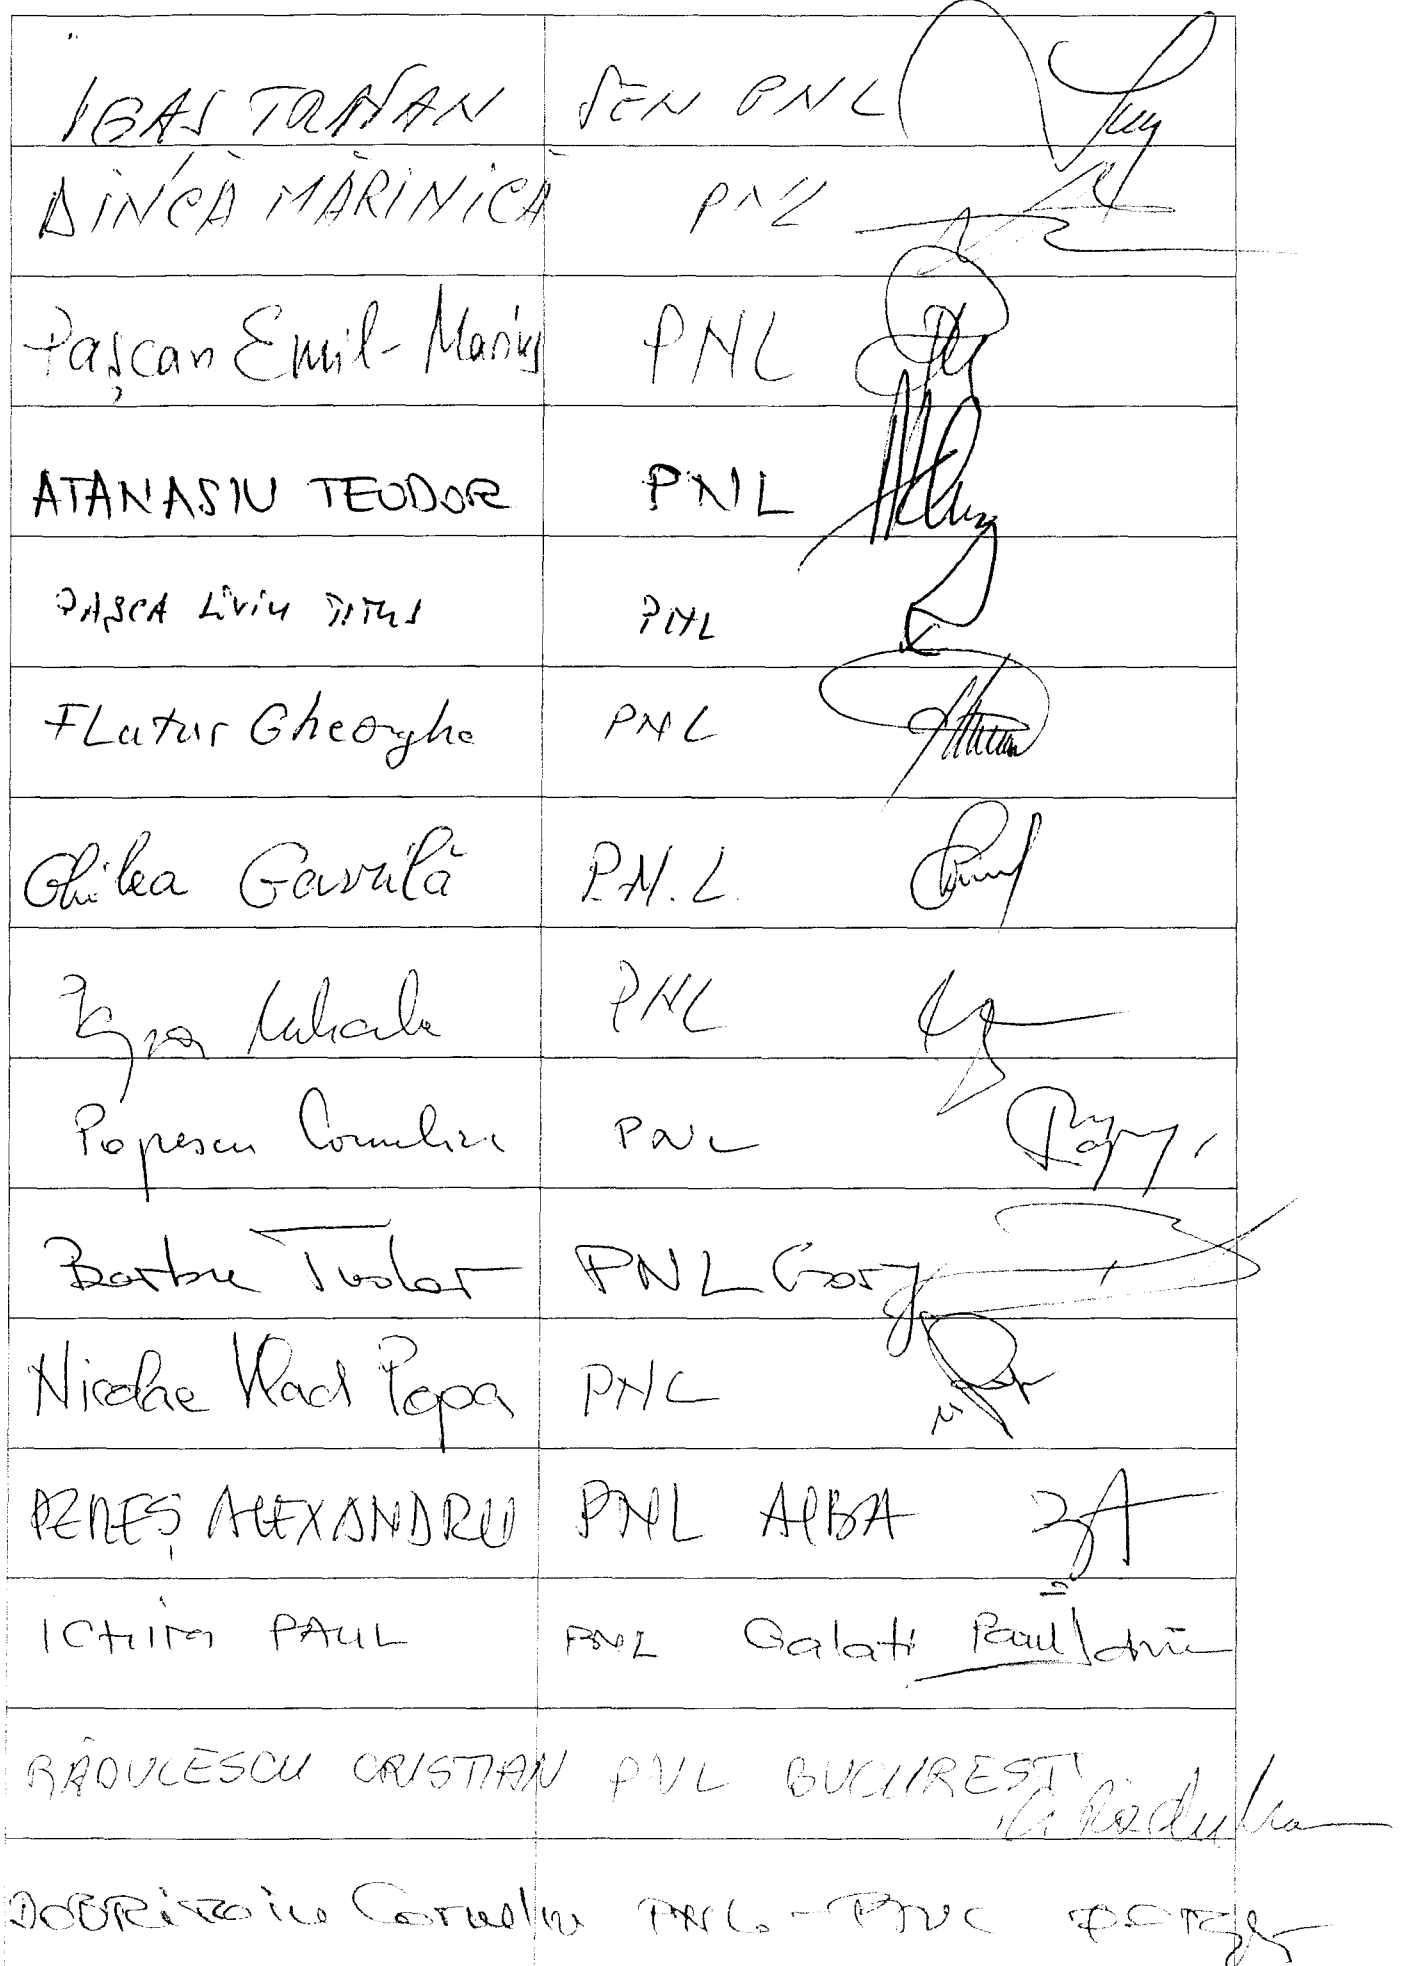 IGAS TRAIAN SEN PNL
DINCĂ MĂRINICĂ PNL
Pașcan Emil-Marius PNL
ATANASIU TEODOR PNL
PAȘCA LiViu TITUS PNL
FLutur Gheorghe PNL
Ghilea Gavrilă P.N.L.
PNL
Popescu Corneliu PNL
Barbu Tudor PNL Gorj
Nicolae Vlad Popa PNL
PEREȘ ALEXANDRU PNL ALBA
ICHIM PAUL PNL Galati Paul Ichim
RĂDULESCU CRISTIAN PNL BUCURESTI
DOBRIȚOiu Corneliu PNL